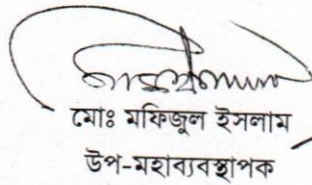 মোঃ মফিজুল ইসলাম
উপ-মহাব্যবস্থাপক